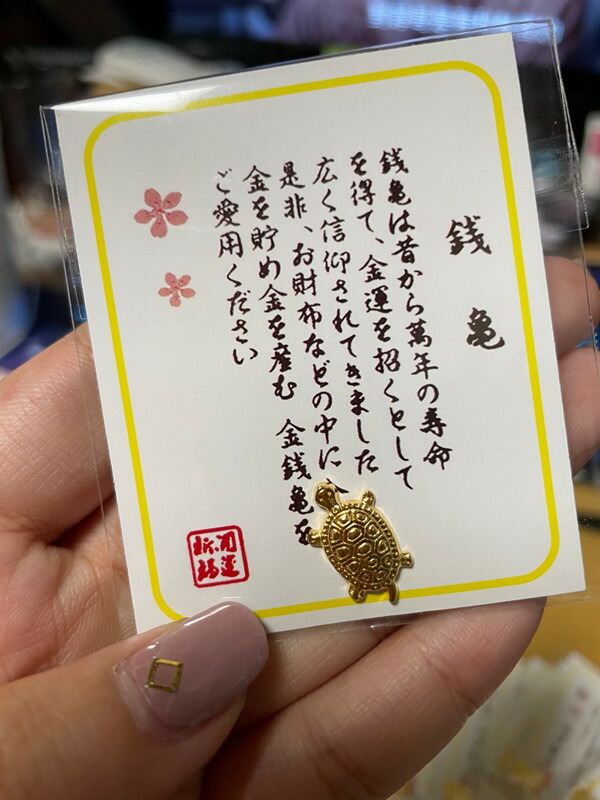 銭亀
銭亀は昔から萬年の寿命
を得て、金運を招くとして
広く信仰されてきました
是非、お財布などの中に
金を貯め金を産む 金銭亀を
ご愛用ください
開運
祈福